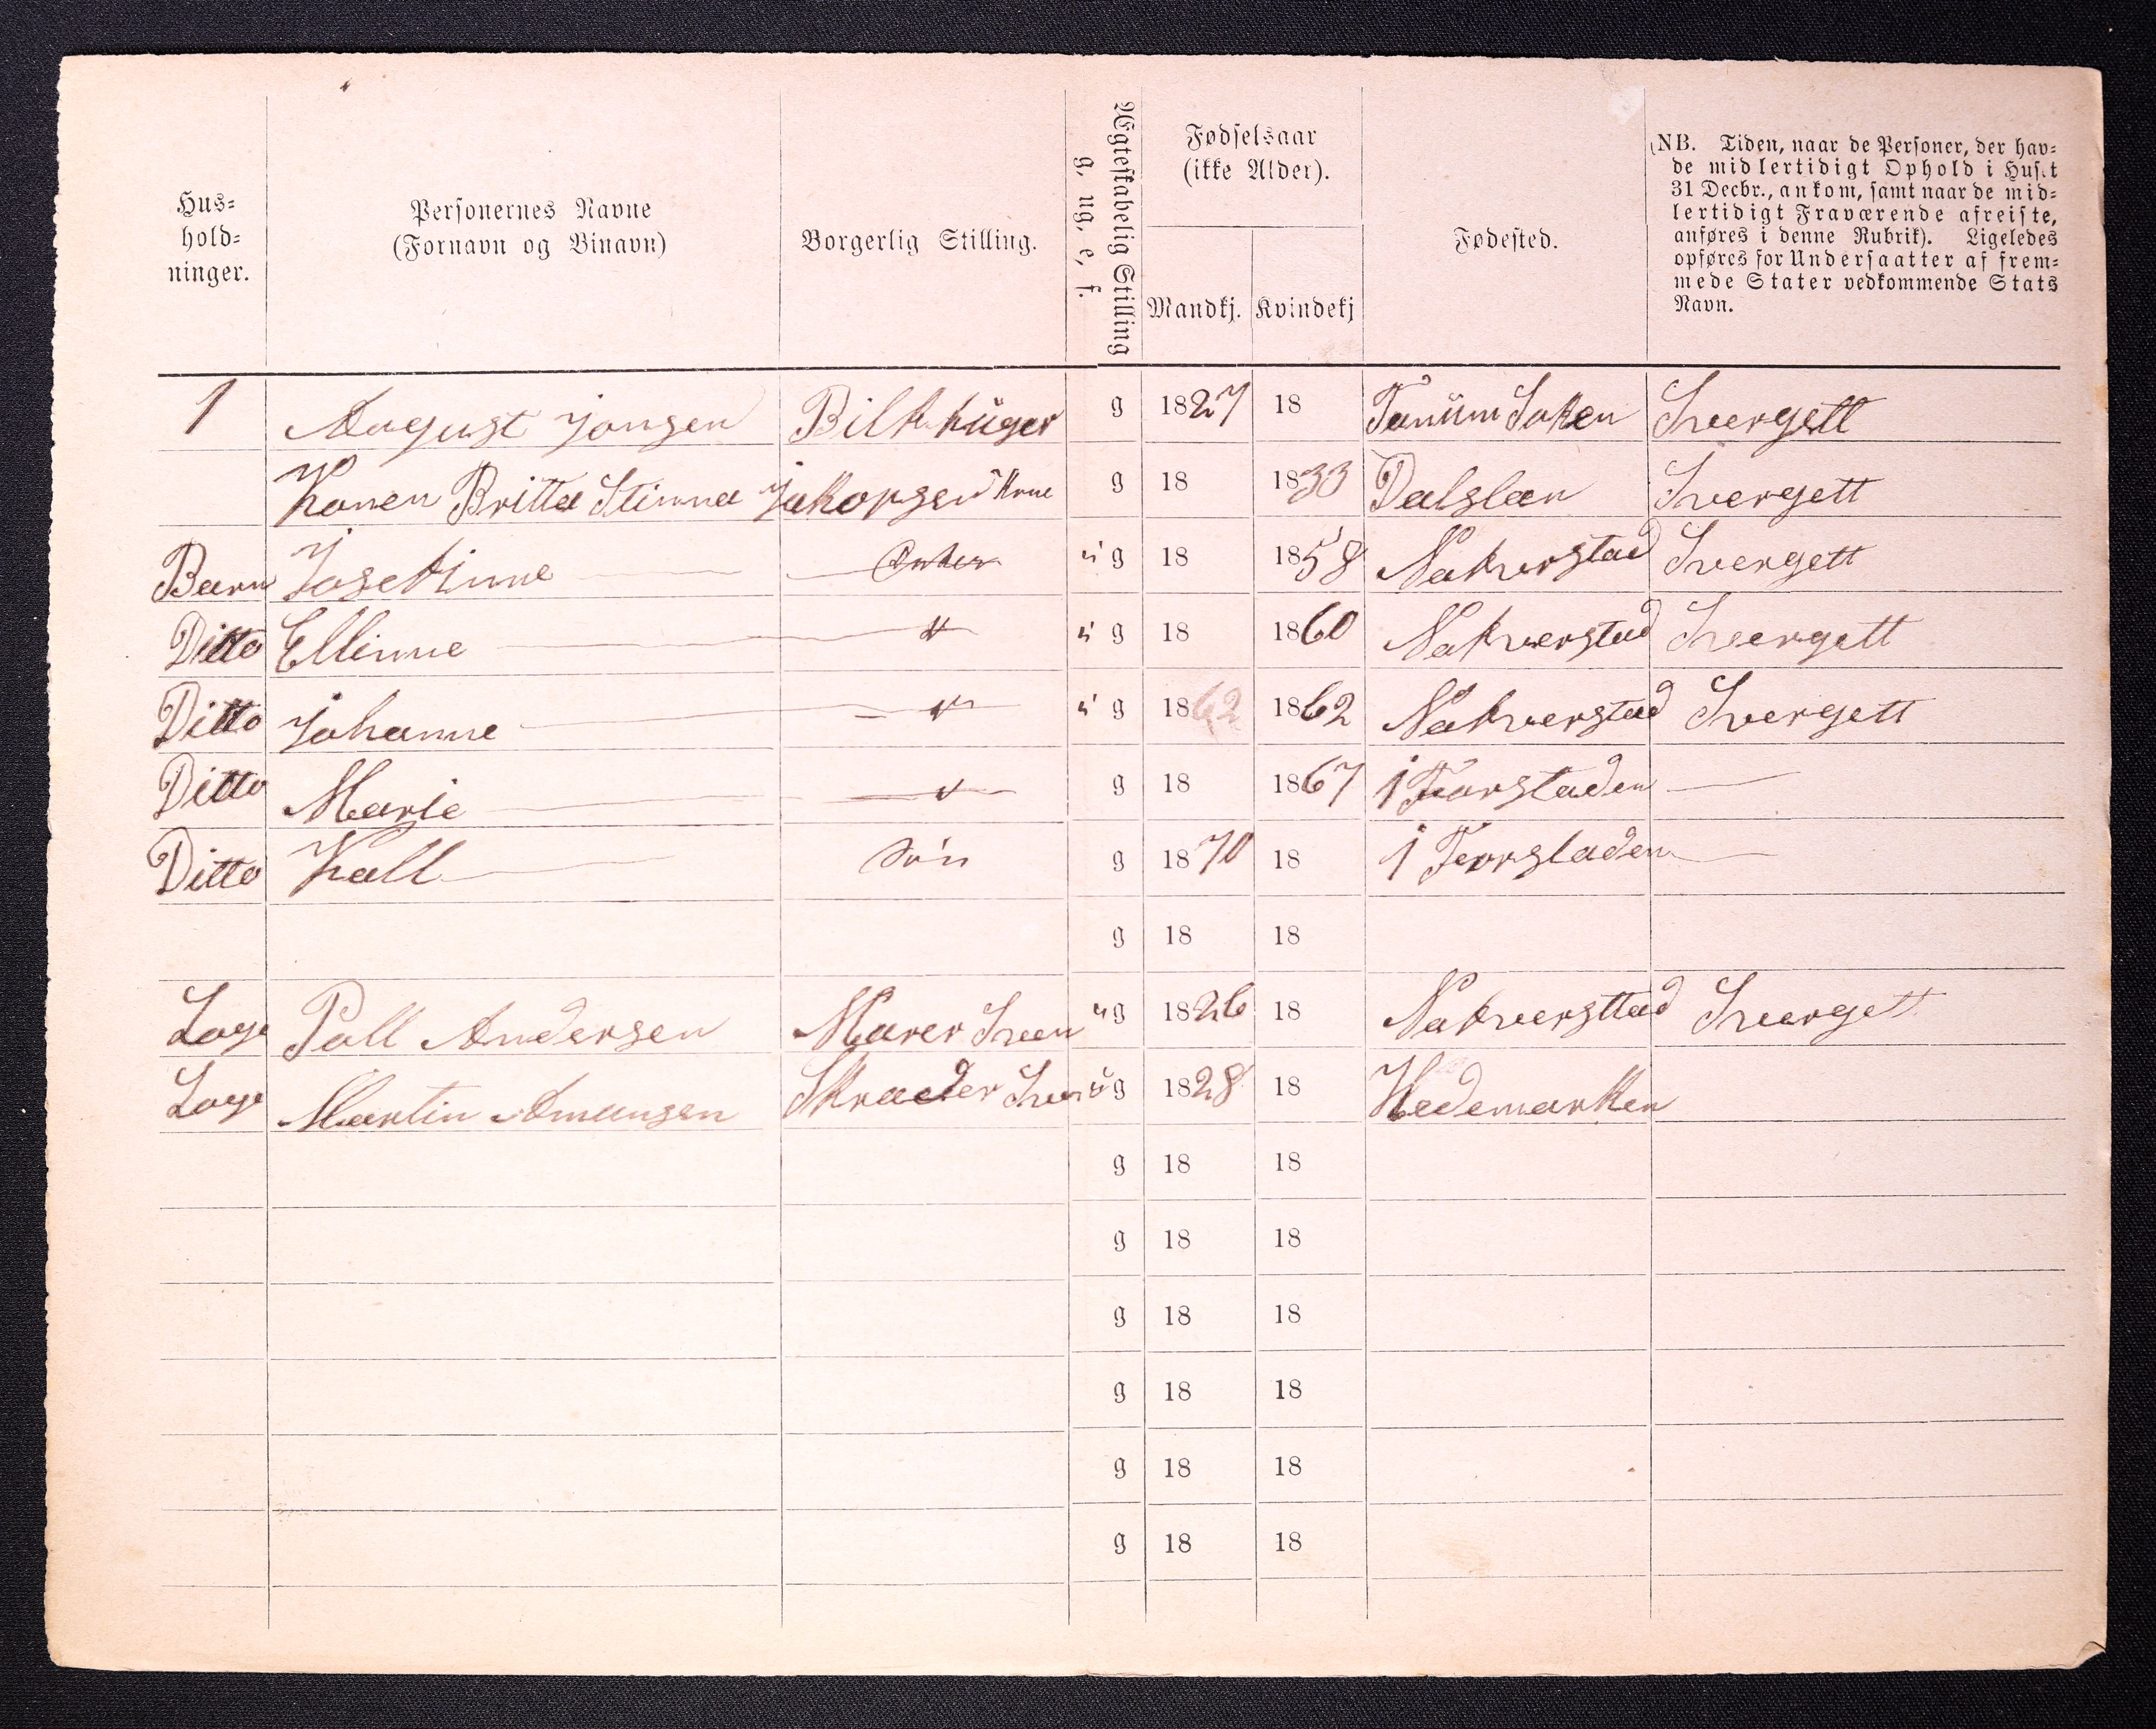 Hus-
hold-
ninger.
Personernes Navne
(Fornavn og Binavn)
Borgerlig Stilling.
Ægteskabelig Stilling
g, ug, e, f.
Fødselsaar
(ikke Alder).
Mandkj. Kvindekj
Fødested.
(NB. Tiden, naar de Personer, der hav-
de midlertidigt Ophold i Huset
31 Decbr., ankom, samt naar de mid-
lertidigt Fraværende afreiste,
anføres i denne Rubrik). Ligeledes
opføres for Undersaatter af frem-
mede Stater vedkommende Stats
Navn.
1 August Jonsen g 1827 18 Tanüm Soken Svergett
Konen Britta Stinna Jakopsen Kone g 18 1833 Dalslan Svergett
Barn Josefinne ug 18 1858 Nakverstad Svergett
Ditto Ellinne " ug 18 1860 Nakverstad Svergett
Ditto Johanne " ug 1862 1862 Nakverstad Svergett
Ditto Marie " g 18 1867 i Fvarstaden
Ditto Kall Søn g 1870 18 i Forrstaden
g 18 18
Loge Pall Andersen Marer Sven ug 1826 18 Nakversttad Svergett
Loge Martin Amunsen Skræder Sven ug 1828 18 Hedemarken
g 18 18
g 18 18
g 18 18
g 18 18
g 18 18
g 18 18